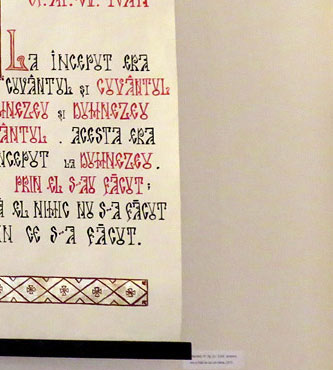 IOAN
LA ÎNCEPUT ERA
CUVÂNTUL ȘI CUVÂNTUL
DUMNEZEU ȘI DUMNEZEU
CUVÂNTUL . ACESTA ERA
ÎNCEPUT LA DUMNEZEU.
PRIN EL S-AU FĂCUT;
EL NIMIC NU S-A FĂCUT
DIN CE S-A FĂCUT.